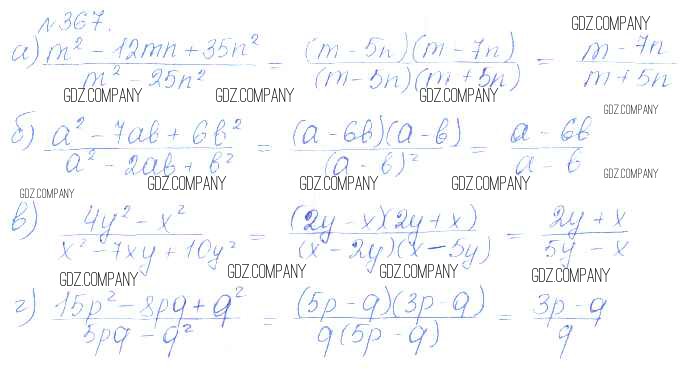 №367.
GDZ.COMPANY
а) (m² − 12mn + 35n²)/(m² − 25n²) = ((m − 5n)(m − 7n))/((m − 5n)(m + 5n)) = (m − 7n)/(m + 5n)
GDZ.COMPANY GDZ.COMPANY GDZ.COMPANY
GDZ.COMPANY
б) (a² − 7ab + 6b²)/(a² − 2ab + b²) = ((a − 6b)(a − b))/((a − b)²) = (a − 6b)/(a − b)
GDZ.COMPANY
GDZ.COMPANY GDZ.COMPANY GDZ.COMPANY
GDZ.COMPANY
в) (4y² − x²)/(x² − 7xy + 10y²) = ((2y − x)(2y + x))/((x − 2y)(x − 5y)) = (2y + x)/(5y − x)
GDZ.COMPANY GDZ.COMPANY GDZ.COMPANY GDZ.COMPANY
г) (15p² − 8pq + q²)/(5pq − q²) = ((5p − q)(3p − q))/(q(5p − q)) = (3p − q)/q